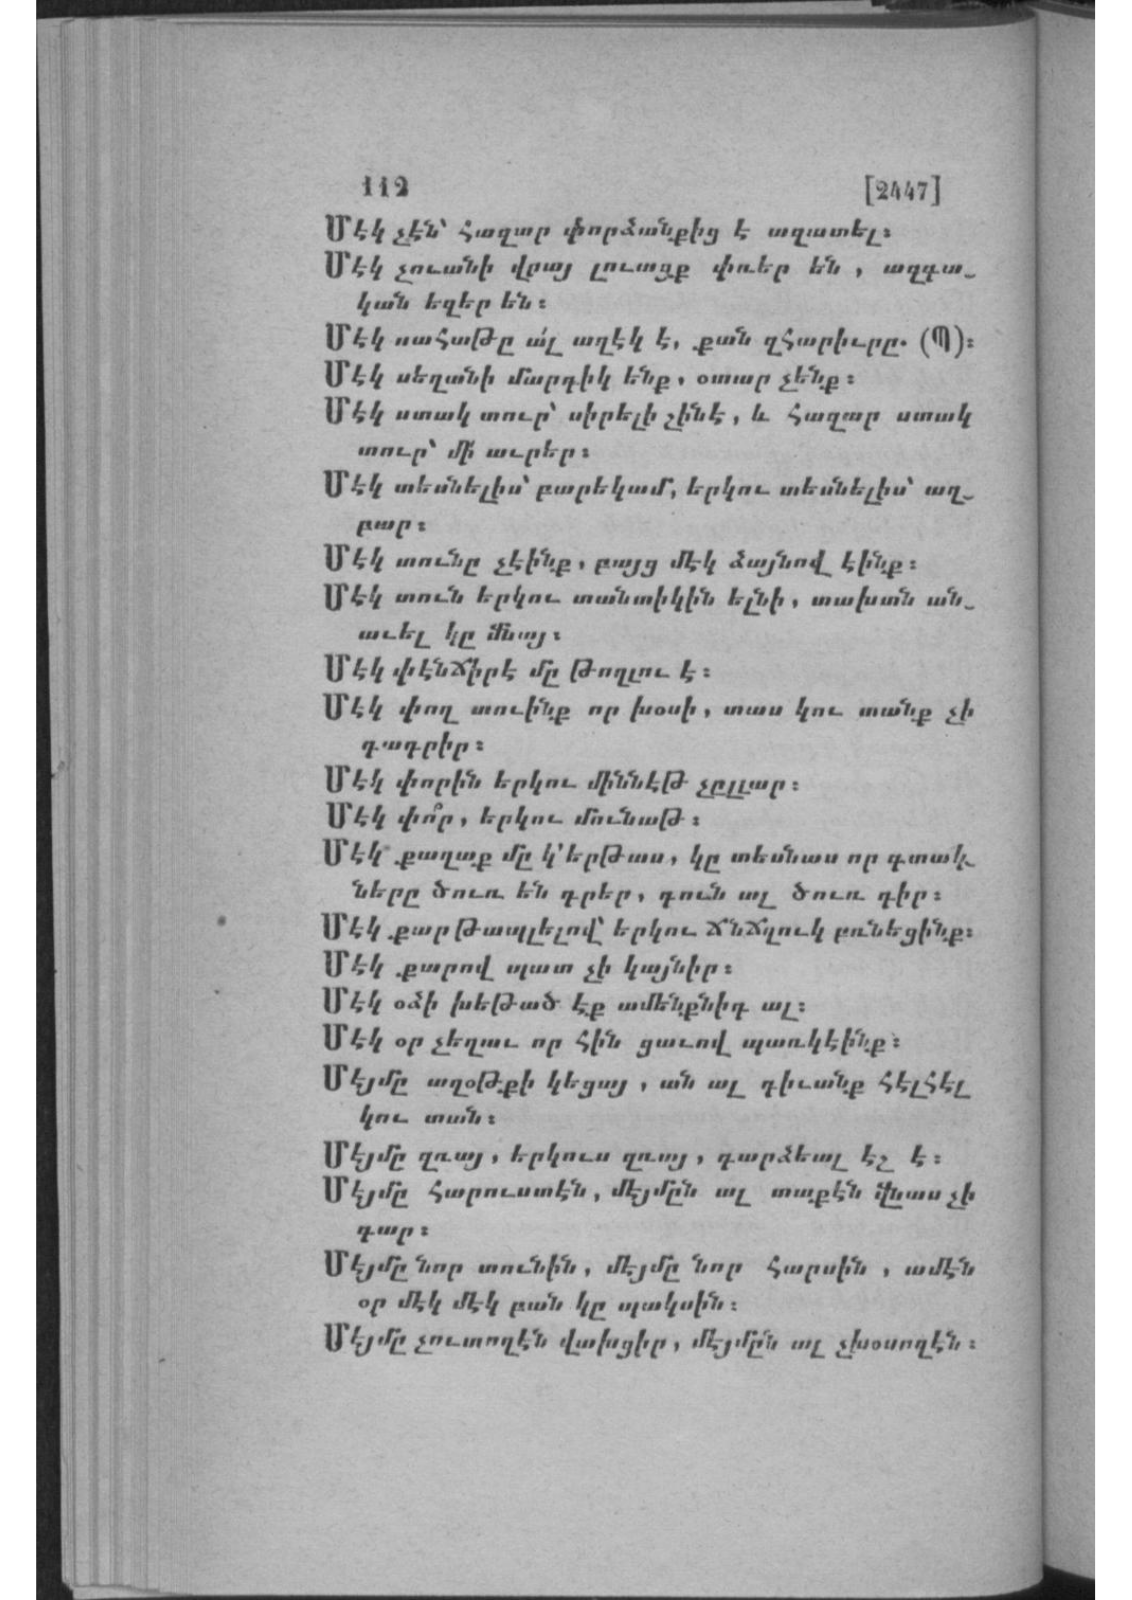 112 [2447]
Մէկ չէն՝ հազար փորձանքից է ազատել։
Մէկ չուանի վրայ լուացք փռեր են, ազգա-
կան եղեր են։
Մէկ սահաթը ա՛լ աղէկ է, քան զհարիւրը. (Պ)։
Մէկ սեղանի մարդիկ ենք, օտար չենք։
Մէկ ստակ տուր՝ սիրելի շինէ, և հազար ստակ
տուր՝ մի՛ աւրեր։
Մէկ տեսնելիս՝ բարեկամ, երկու տեսնելիս՝ աղ-
բար։
Մէկ տունը չէինք, բայց մէկ ձայնով էինք։
Մէկ տուն երկու տանտիկին ելնի, տախտն ան-
աւել կը մնայ։
Մէկ փէնճիրէ մը թողլու է։
Մէկ փող տուինք որ խօսի, տաս կու տանք չի
գադրիր։
Մէկ փորին երկու միննէթ չըլլար։
Մէկ փո՞ր, երկու մունաթ։
Մէկ քաղաք մը կ՚երթաս, կը տեսնաս որ գտակ-
ները ծուռ են դրեր, դուն ալ ծուռ դիր։
Մէկ քար թապլելով՝ երկու ճնճղուկ բռնեցինք։
Մէկ քարով պատ չի կայնիր։
Մէկ օձի խեթած էք ամենքնիդ ալ։
Մէկ օր չեղաւ որ հին ցաւով պառկէինք։
Մէյմը աղօթքի կեցայ, ան ալ դիւանք հէլհէլ
կու տան։
Մէյմը զռայ, երկուս զռայ, դարձեալ էշ է։
Մէյմը հարուստէն, մէյմըն ալ տաքէն վնաս չի
գար։
Մէյմը նոր տունին, մէյմը նոր հարսին, ամէն
օր մէկ մէկ բան կը պակսին։
Մէյմը չուտողէն վախցիր, մէյմըն ալ չխօսողէն։